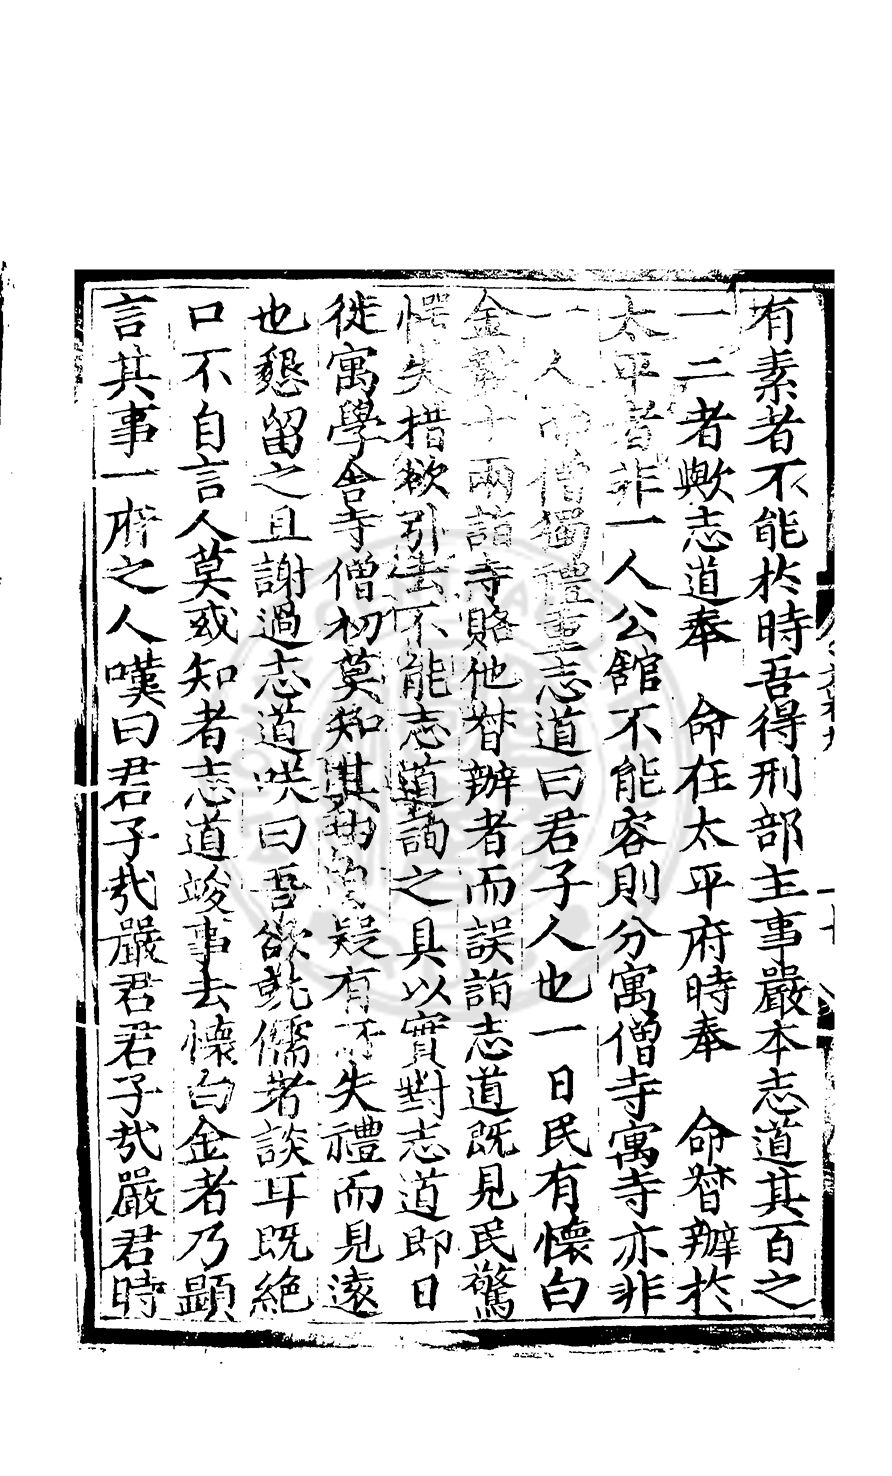 有素者不能於時吾得刑部主事嚴本志道其百之
一二者歟志道奉　命在太平府時奉　命督辦於
太平者非一人公館不能容則分寓僧寺寓寺亦非
一人而僧獨禮重志道曰君子人也一日民有懷白
金數十兩詣寺賂他督辦者而誤詣志道既見民驚
愕失措欲引去不能志道詢之具以實對志道即日
徙寓學舍寺僧初莫知其由疑有所失禮而見遠
也懇留之且謝過志道咲曰吾欲就儒者談耳既絕
口不自言人莫或知者志道竣事去懷白金者乃顯
言其事一府之人嘆曰君子哉嚴君君子哉嚴君時